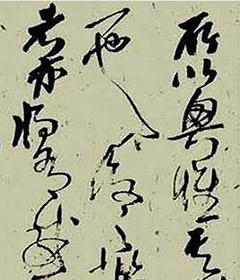 所以興懷其
一也後之攬
者亦將有感